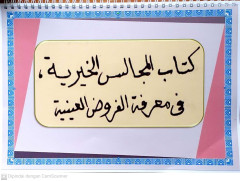 كتاب المجالس الخيرية،
في معرفة الفروض العينية